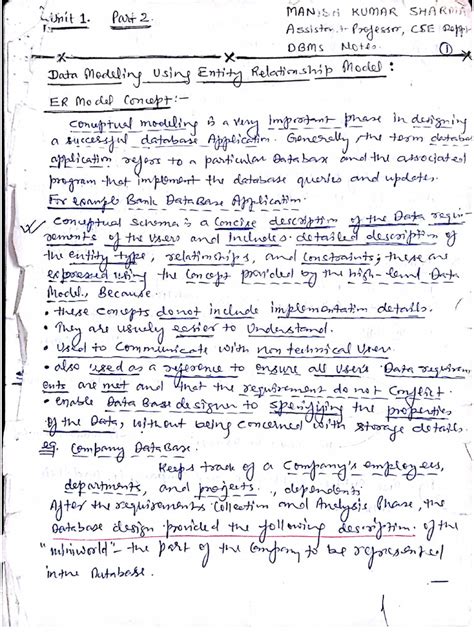 Unit 1. Part 2.
MANISH KUMAR SHARMA
Assistant Professor, CSE Deptt
DBMS Notes.
1
Data Modeling Using Entity Relationship Model:
ER Model Concept:-
Conuptual modeling is a very important phase in designing
a successful database Application. Generally, the term database
application refers to a particular Database and the associated
program that implement the database queries and updates.
For example Bank DataBase Application.
Conuptual Schema is a Concise description of the Data requi-
rements of the users and Includes detailed description of
the entity types, relationships, and Constraints; these are
expressed using the Concept provided by the high-level Data
Model. Because
• these Concepts do not include implementation details.
• They are usuely easier to Understand.
• Used to Communicate with non technical User
• also used as a reference to ensure all users Data requirem-
ents are met and that the requirement do not Conflict.
• enable DataBase designer to specifying the properties
of the Data, without being concerned with storage details
eg. Company DataBase.
Keeps track of a Company's employees,
departments, and projects., dependents
After the requirements Collection and Analysis Phase, the
Database design provided the following description of the
"miniworld"- the part of the Company to be represented
in the Database.